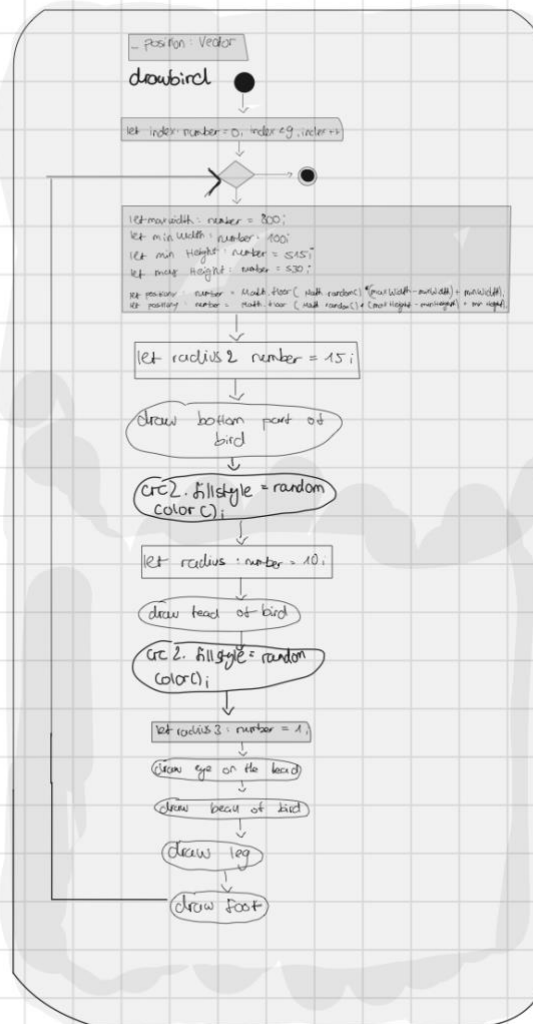 _ position : Vector
drawbird
let index: number = 0, index < 9, index ++
let maxwidth : number = 800;
let min Width : number = 100;
let min Height : number = 515;
let max Height : number = 530;
let position : number = Math.floor ( Math.random() * (maxWidth - minWidth) + minWidth);
let position : number = Math.floor ( Math.random() * (maxHeight - minHeight) + minHeight);
let radius 2 number = 15;
draw bottom part of
bird
crc 2. fillstyle = random
color();
let radius : number = 10;
draw head of bird
crc 2. fillstyle = random
color();
let radius 3 : number = 1;
draw eye on the head
draw beak of bird
draw leg
draw foot